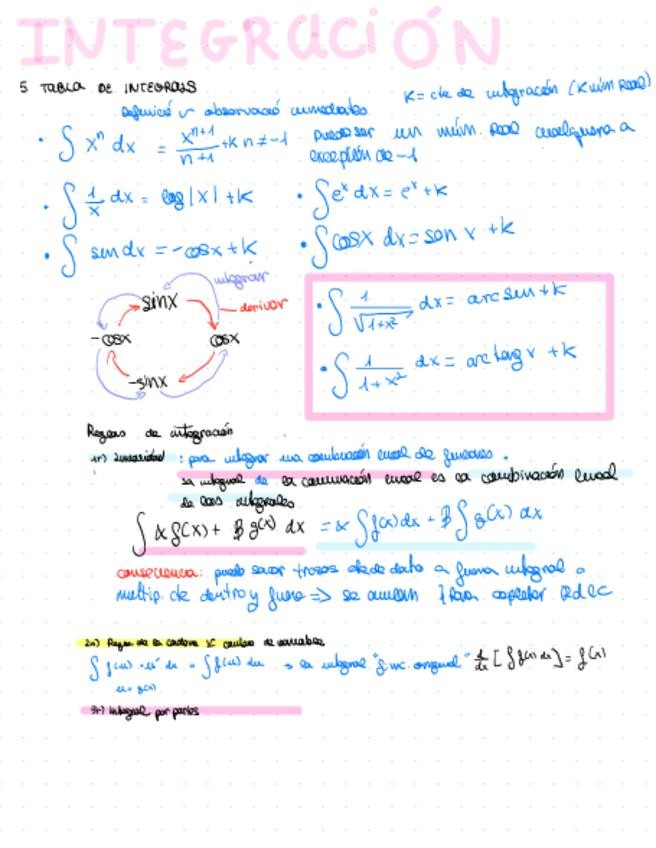 INTEGRACIÓN
5 TABLA DE INTEGRALS
K = cte de integración (K núm Real)
Definició observació inmediates
• ∫ xⁿ dx = xⁿ⁺¹/n+1 + k n ≠ -1 puede ser un núm. Real cualquiera a
excepción de -1
• ∫ 1/x dx = log |x| + K • ∫ eˣ dx = eˣ + K
• ∫ sen dx = -cosx + K • ∫ cosx dx = sen x + K
integrar
sinx
derivar
-cosx cosx
-sinx
• ∫ 1/√1+x² dx = arc sen + K
• ∫ 1/1+x² dx = arc tang x + K
Reglas de integración
1r) Linearidad: para integrar una combinación lineal de funciones.
la integral de la combinación lineal es la combinación lineal
de las integrales
∫ α f(x) + β g(x) dx = α ∫ f(x) dx + β ∫ g(x) dx
consecuencia: puedo sacar trozos de dato a fuera integral o
multip. de dentro y fuera => se anulan
2n) Regla de la cadena cambio de variables
∫ f(u) · u' dx = ∫ f(u) du → la integral "func. original" d/dx [∫ f(x) dx] = f(x)
u = g(x)
3r) Integral por partes